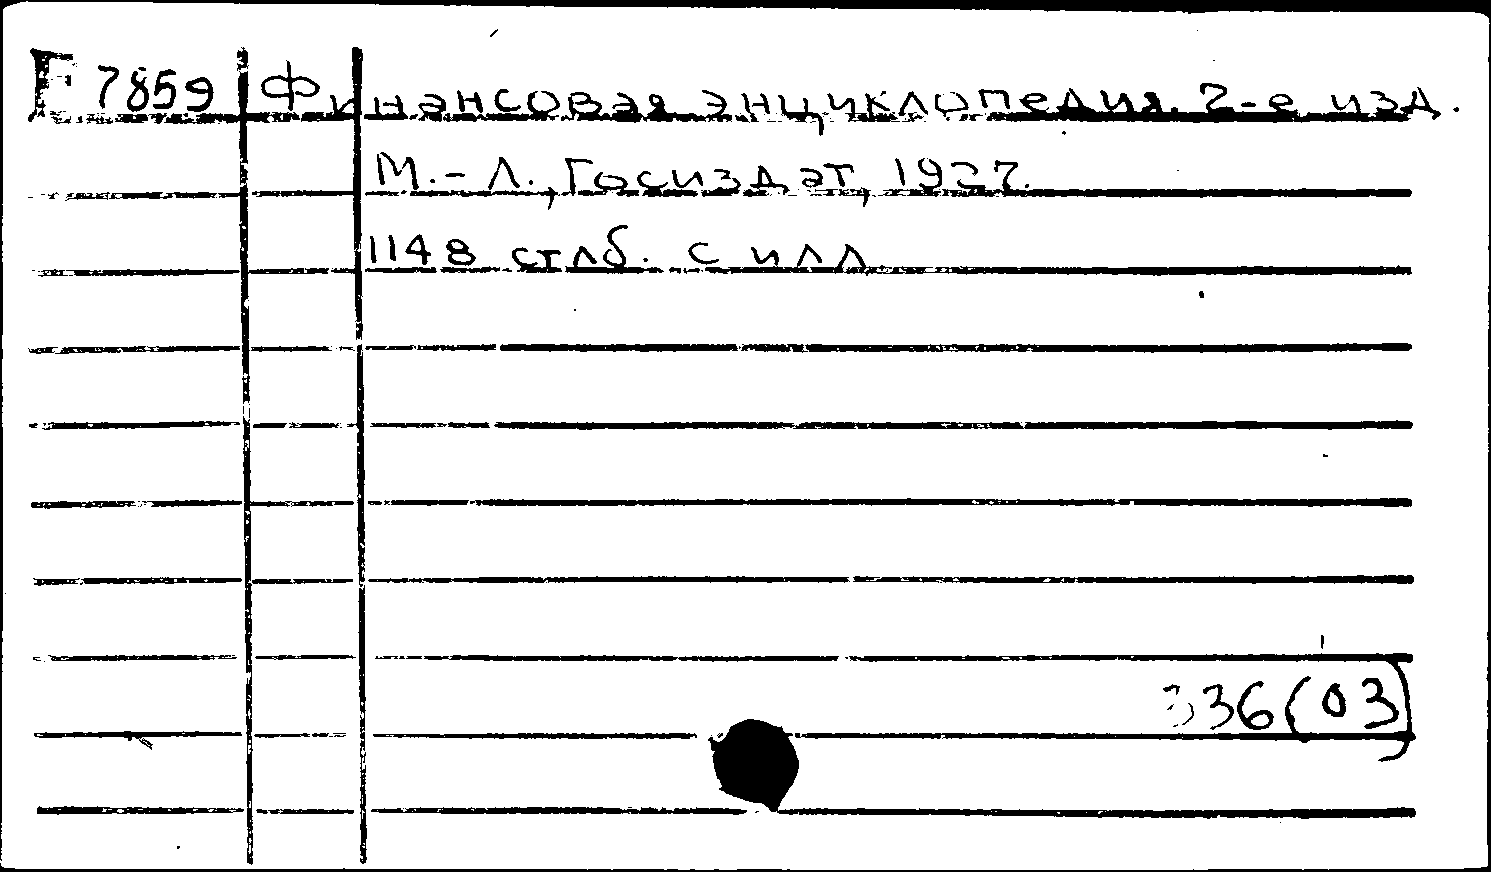 E 7859 Финансовая энциклопедия. 2-е изд.
М.-Л., Госиздат, 1927.
1148 стлб. с илл
336(03)